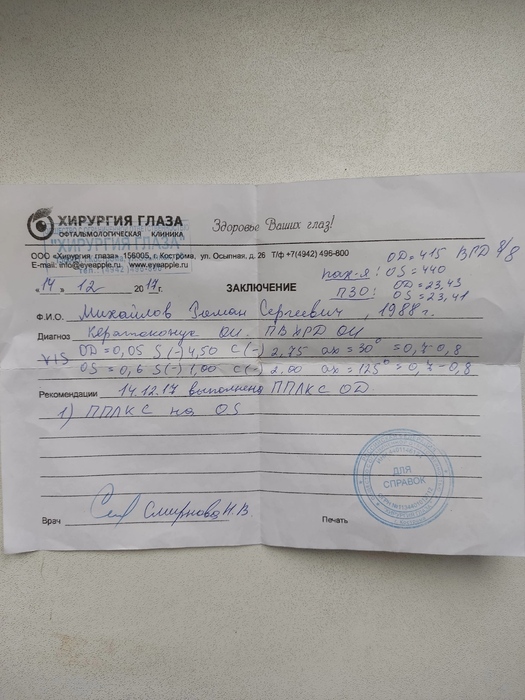 ХИРУРГИЯ ГЛАЗА
ОФТАЛЬМОЛОГИЧЕСКАЯ КЛИНИКА
Здоровье Ваших глаз!
"ХИРУРГИЯ ГЛАЗА"
ООО «Хирургия глаза» 156005, г. Кострома, ул. Осыпная, д. 26 Т/ф +7(4942) 496-800
E-mail: info@eyeapple.ru www.eyeapple.ru
OD = 415 ВРД
пах-я: OS = 440
ПЗО: OD = 23,43
OS = 23,41
« 14 » 12 2017г. ЗАКЛЮЧЕНИЕ
Ф.И.О. Михайлов Сергеевич, 1988г.
Диагноз Кератоконус ОИ. ПВХРД ОИ
VIS OD = 0,05 S (-) 4,50 C (-) 2,75 ax = 30° = 0,7-0,8
OS = 0,6 S (-) 1,00 C (-) 2,00 ax = 125° = 0,7-0,8
Рекомендации 14.12.17 выполнена ППЛКС OD.
1) ППЛКС на OS
ДЛЯ
СПРАВОК
Врач Смирнова Н.В.
Печать